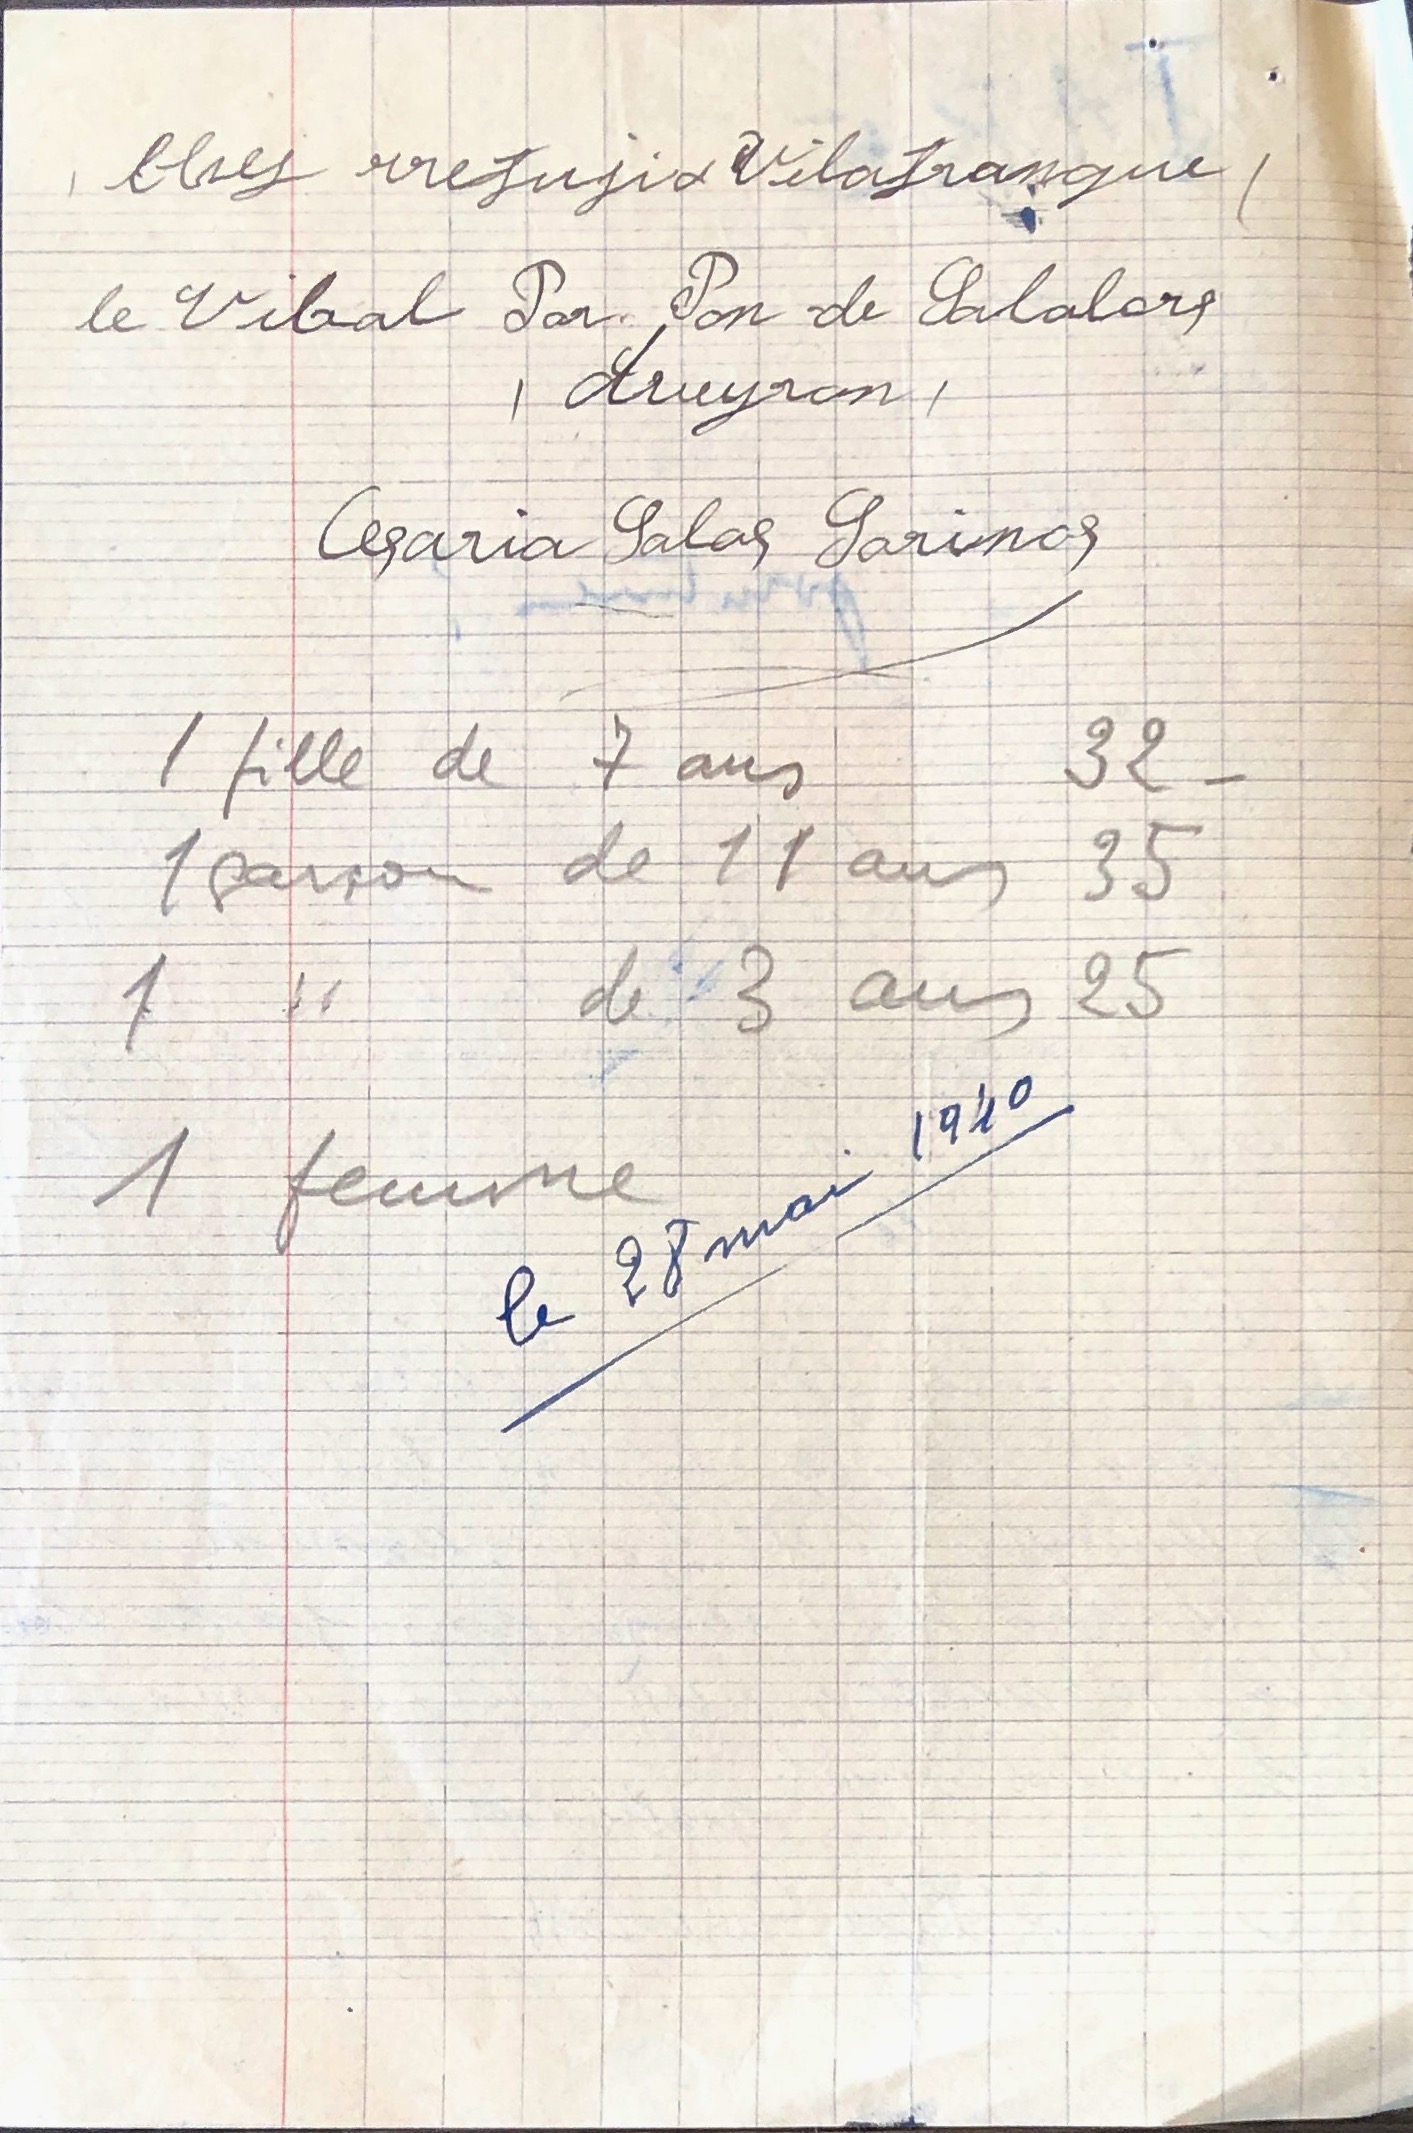 rrefujix Vilafranque
le Vibal Par. Pon de Salalars
Aveyron
Cesaria Salas Sarinos
1 fille de 7 ans 32 -
1 garson de 11 ans 35
1 " de 3 ans 25
1 femme
le 28 mai 1940